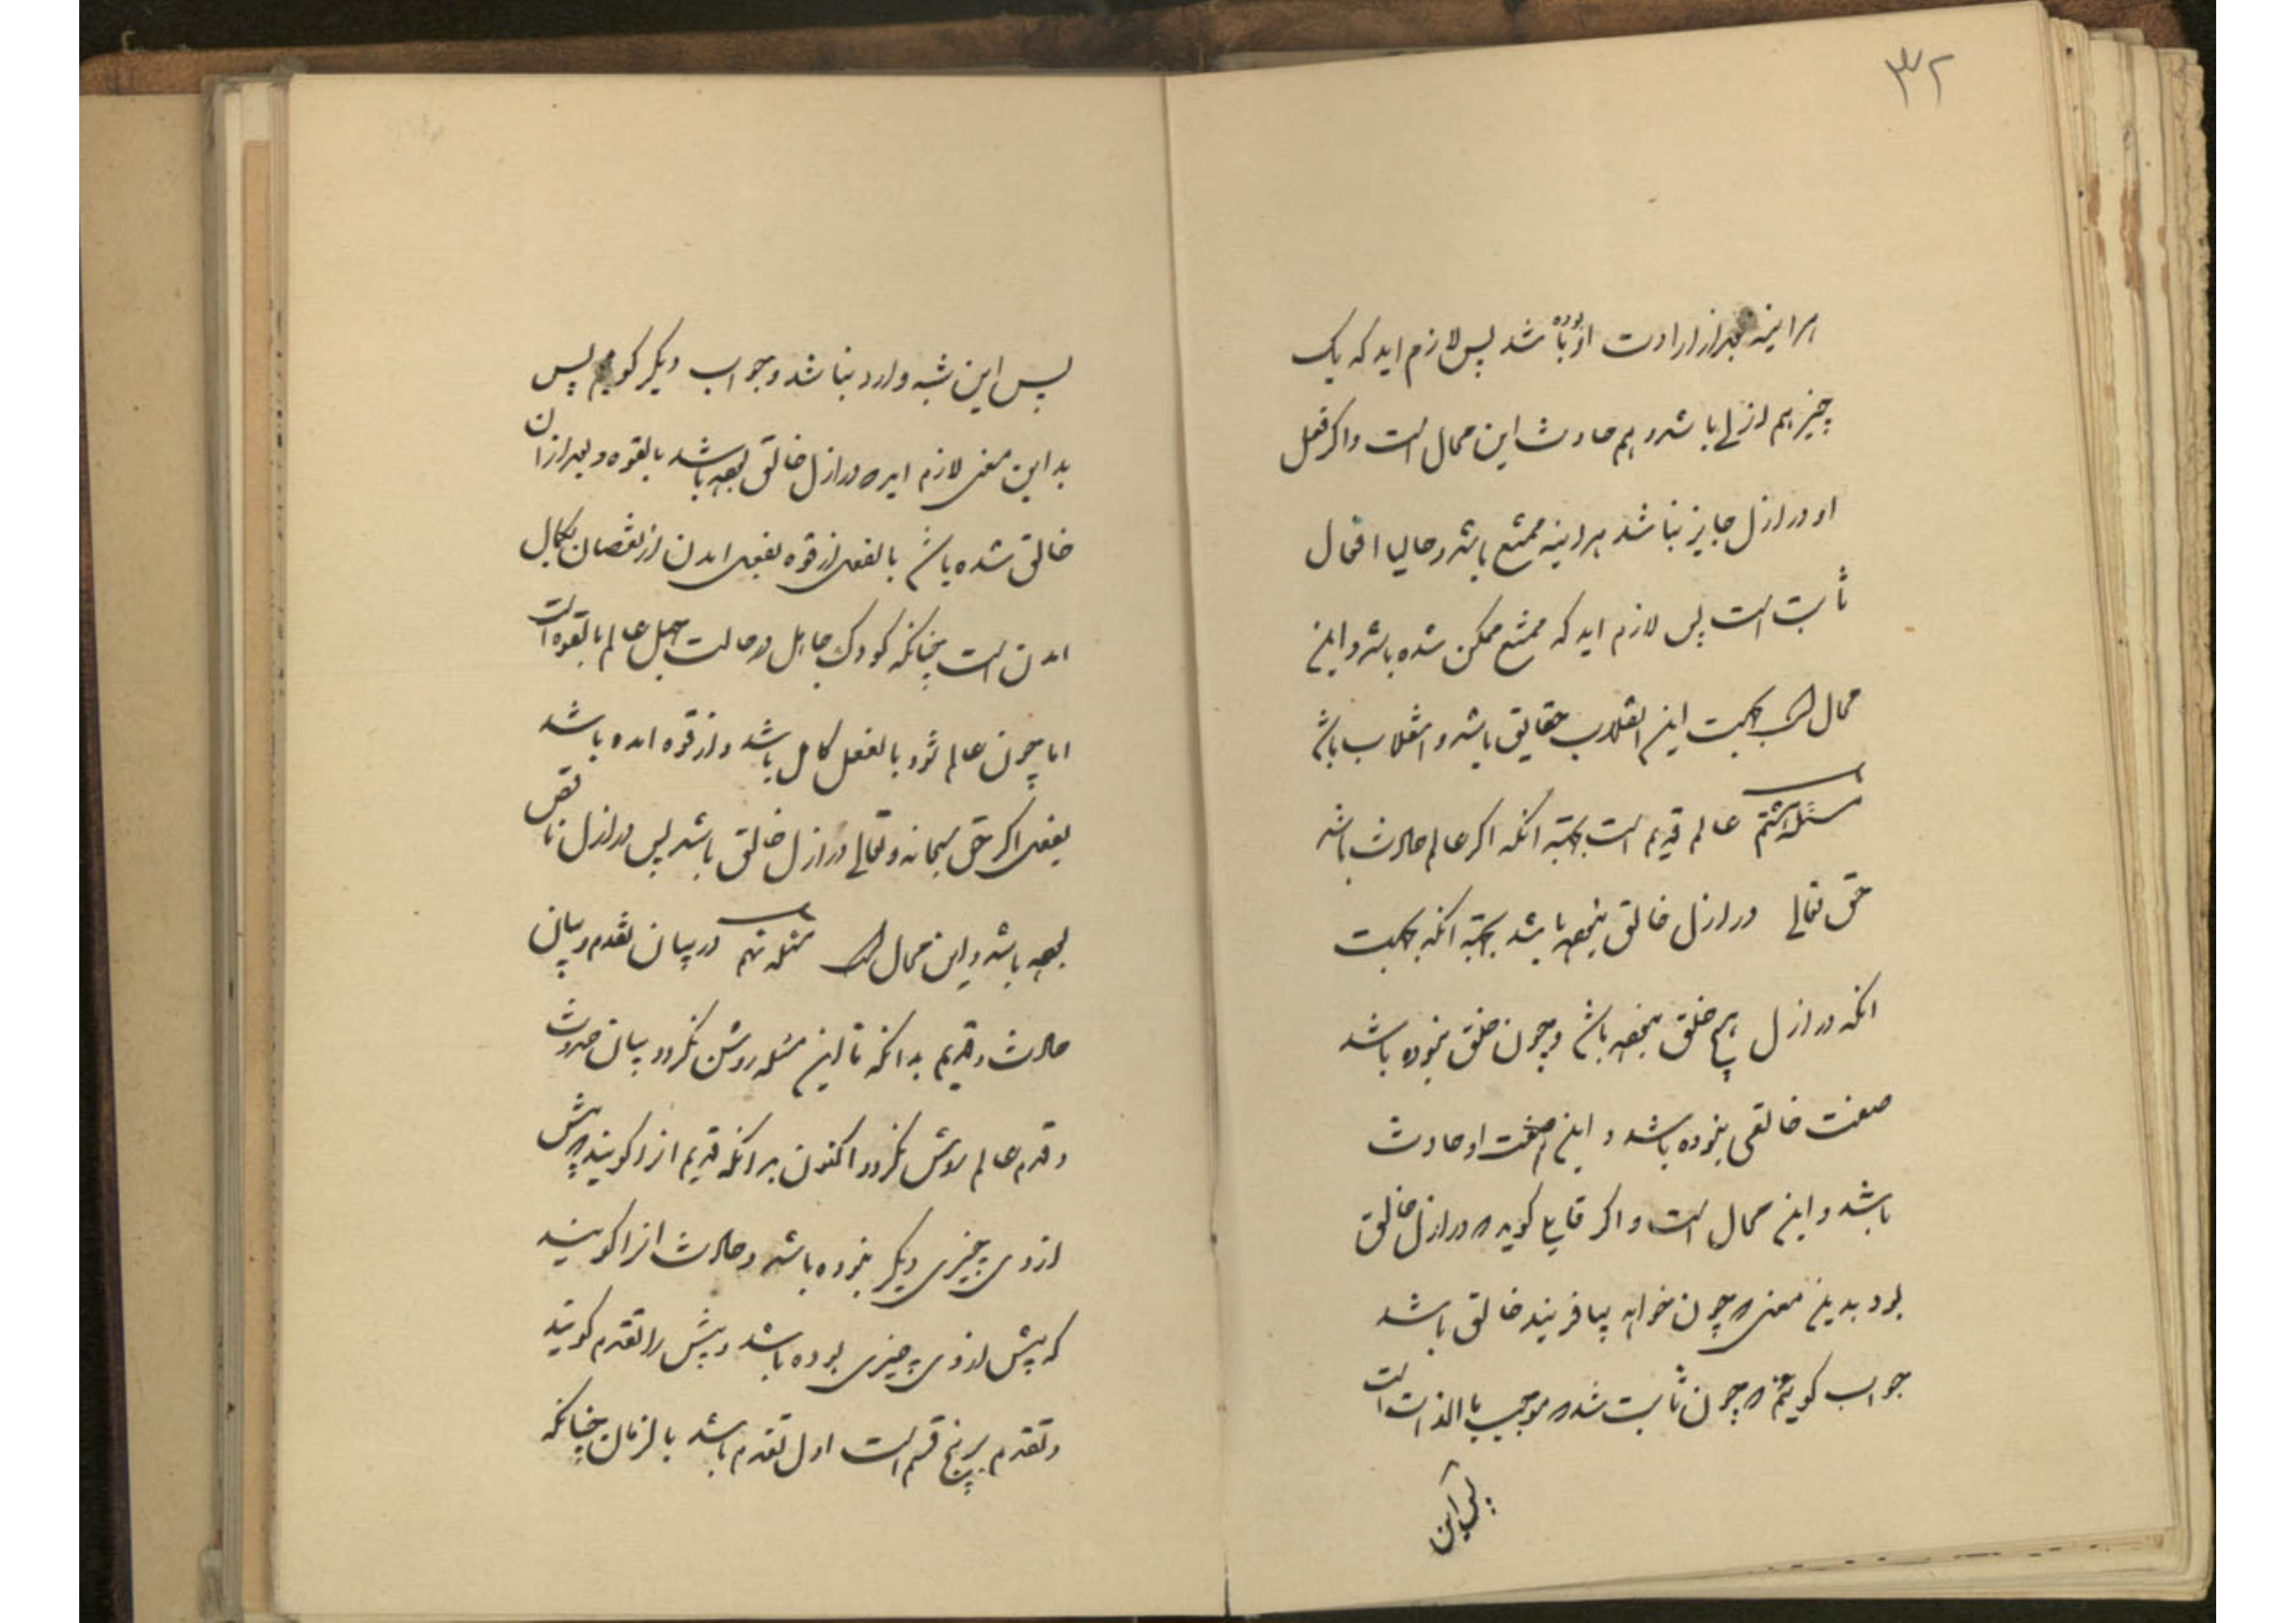 ۳۲
هراینه بعد از ارادت او بوده باشد پس لازم اید که یک
چیز هم ازلی باشد و هم حادث این محال است و اکر فعل
او در ازل جایز نباشد هراینه ممتنع باشد و حالیا افعال
ثابت است پس لازم اید که ممتنع ممکن شده باشد و این
محال است بجهت این انقلاب حقایق باشد و انقلاب باشد
مسئله هشتم عالم قدیم است بجهته انکه اکر عالم حادث باشد
حق تعالی در ازل خالق نبوده باشد بجهته انکه بجهت
انکه در ازل هیچ خلق نبوده باشد و چون خلق نبوده باشد
صفت خالقی نبوده باشد و این صفت او حادث
باشد و این محال است و اکر قایلی کوید که در ازل خالق
بود بدین معنی که چون خواهد بیافریند خالق باشد
جواب کوییم که چون ثابت شد که موجب بالذات است
پس این
پس این شبه وارد نباشد و جواب دیکر کوییم پس
بداین معنی لازم اید که در ازل خالق بوده باشد بالقوه و بعد از ان
خالق شده باشد بالفعل از قوه بفعل امدن از نقصان بکمال
امدن است چنانکه کودک جاهل در حالت جهل عالم بالقوه است
اما چون عالم شود بالفعل کامل باشد و از قوه امده باشد
بفعل اکر حق سبحانه و تعالی در ازل خالق باشد پس در ازل ناقص
بوده باشد و این محال است مسئله نهم در بیان تقدم و بیان
حادث و قدیم بدانکه تا این مسئله روشن نکردد بیان حدوث
و قدم عالم روشن نکردد اکنون بدانکه قدیم انرا کویند که پیش
از وی چیزی دیکر نبوده باشد و حادث انرا کویند
که پیش از وی چیزی بوده باشد و پیش را تقدم کویند
و تقدم بر پنج قسم است اول تقدم باشد بالزمان چنانکه